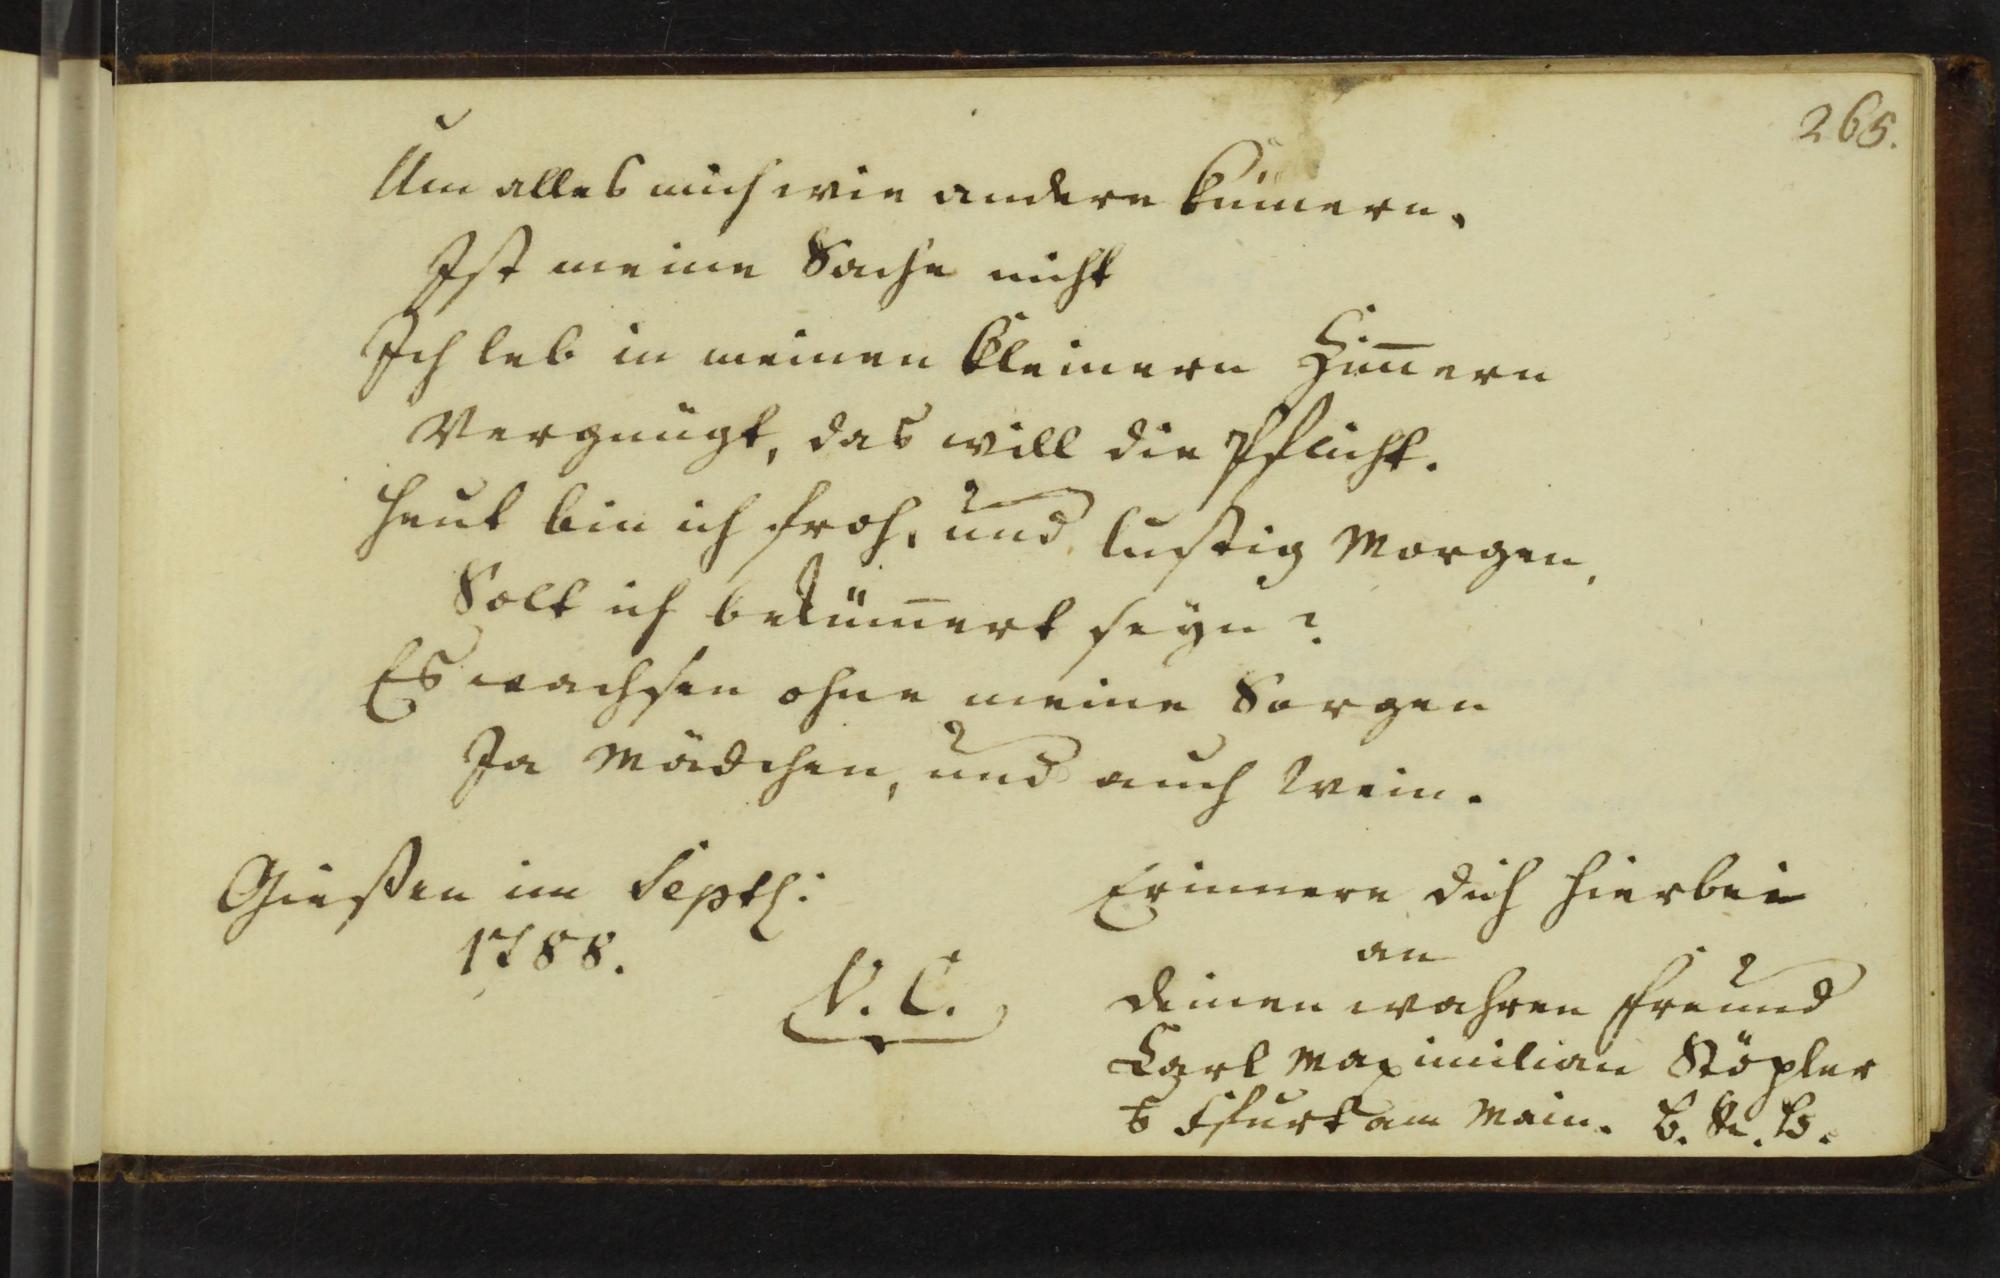 265.
Um alles mich wie andere kümern.
Ist meine Sache nicht
Ich leb in meinen kleinern Zim̅ern
Vergnügt, das will die Pflicht.
Heut bin ich froh, und lustig Morgen,
Solt ich beküm̅ert seyn?
Es wachsen ohne meine Sorgen
Ja Mädchen, und auch Wein.
Giesen im Septb:
1788.
V. C.
Erinnere dich hierbei
an
deinen wahren Freund
Carl Maximilian Stöpler
Ffurt am Main.